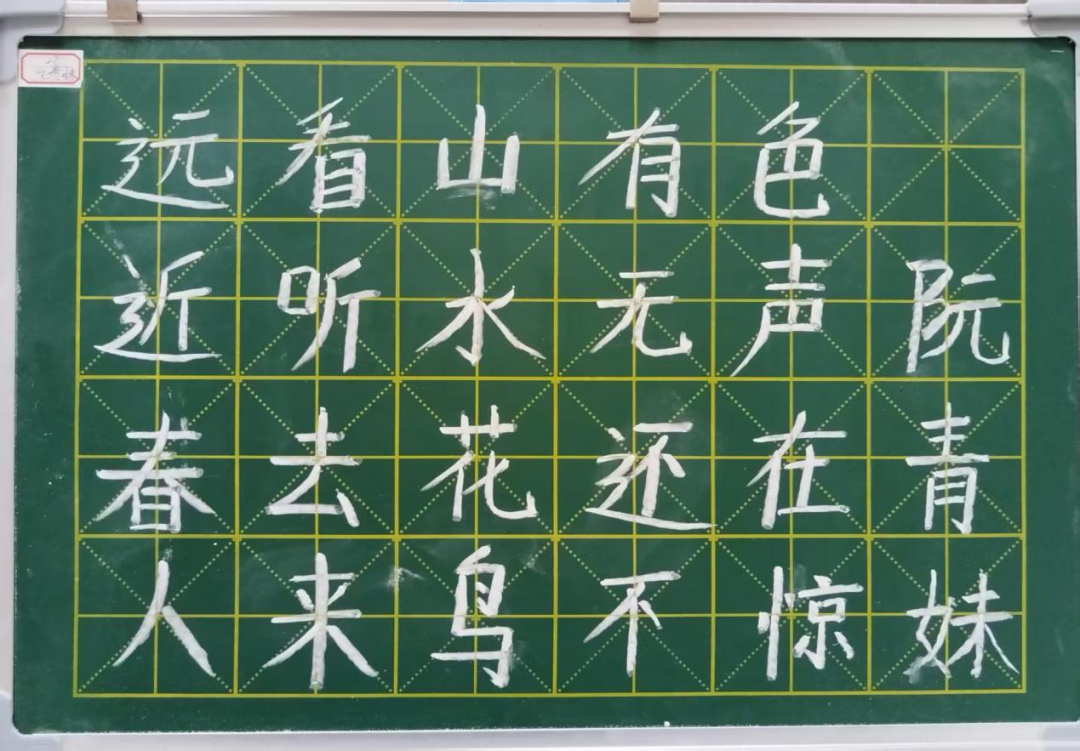 远看山有色
近听水无声 阮
春去花还在 青
人来鸟不惊 妹